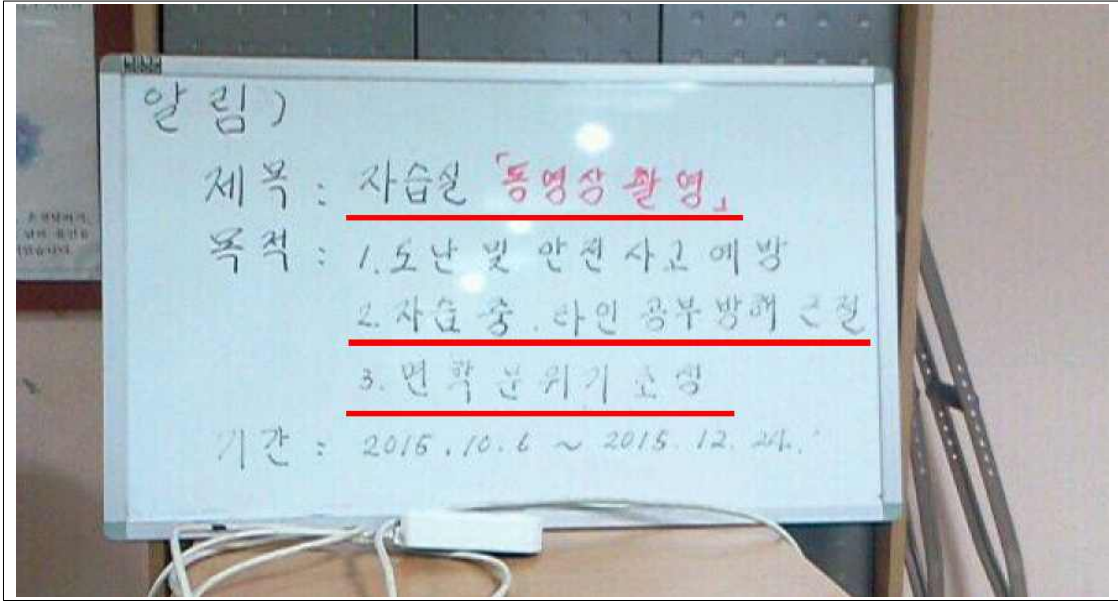 알림)
제목 : 자습실 「동영상 촬영」
목적 : 1. 도난 및 안전사고예방
2. 자습 중. 타인 공부방해 근절
3. 면학 분위기 조성
기간 : 2015.10.6 ~ 2015.12.24.